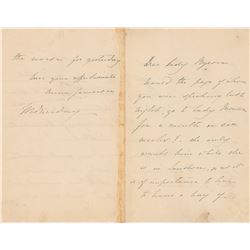 Dear Lady Byron
Would the page of whom
you were speaking last
night, go to Lady
for a month or six
weeks? She only
wants him while she
is in London, and it
is of importance to her
to have a boy of
the  for yesterday
ever your affectionate
Anna Jameson
Wednesday